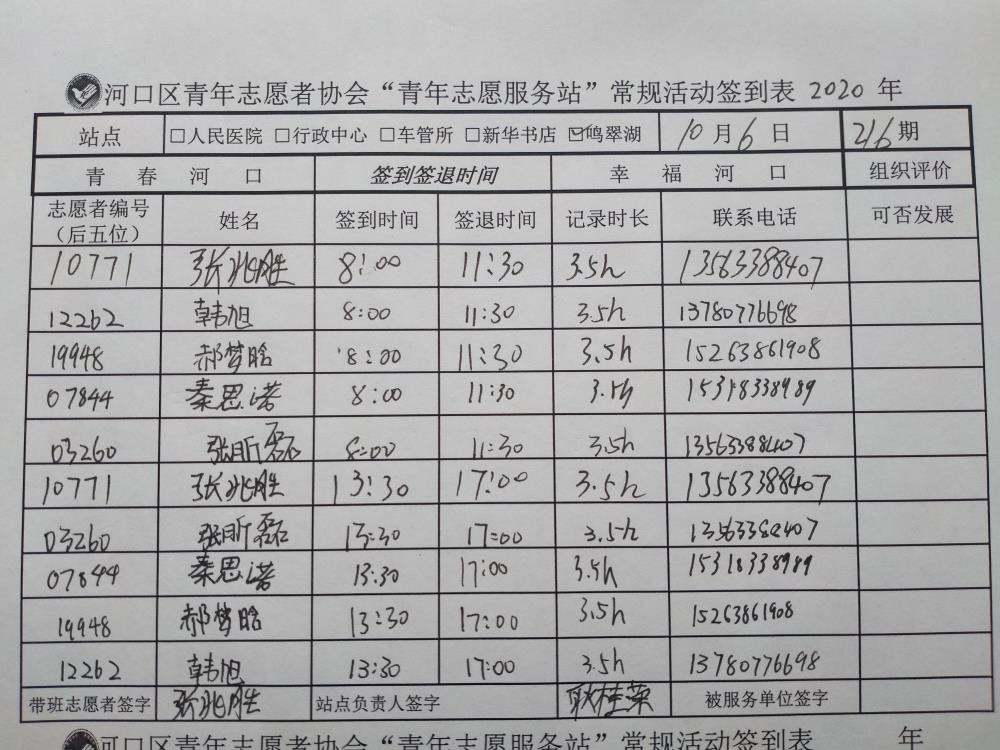 河口区青年志愿者协会“青年志愿服务站”常规活动签到表 2020 年
站点 □人民医院 □行政中心 □车管所 □新华书店 ☑鸣翠湖 10月6日 216期
青春河口 签到签退时间 幸福河口 组织评价
志愿者编号（后五位） 姓名 签到时间 签退时间 记录时长 联系电话 可否发展
10771 张兆胜 8:00 11:30 3.5h 13563388407
12262 韩旭 8:00 11:30 3.5h 13780776698
19948 郝梦晗 8:00 11:30 3.5h 15263861908
07844 秦思诺 8:00 11:30 3.5h 15318338989
03260 张昕磊 8:00 11:30 3.5h 13563388407
10771 张兆胜 13:30 17:00 3.5h 13563388407
03260 张昕磊 13:30 17:00 3.5h 13563388407
07844 秦思诺 13:30 17:00 3.5h 15318338989
19948 郝梦晗 13:30 17:00 3.5h 15263861908
12262 韩旭 13:30 17:00 3.5h 13780776698
带班志愿者签字 张兆胜 站点负责人签字 耿桂荣 被服务单位签字
河口区青年志愿者协会“青年志愿服务站”常规活动签到表 年